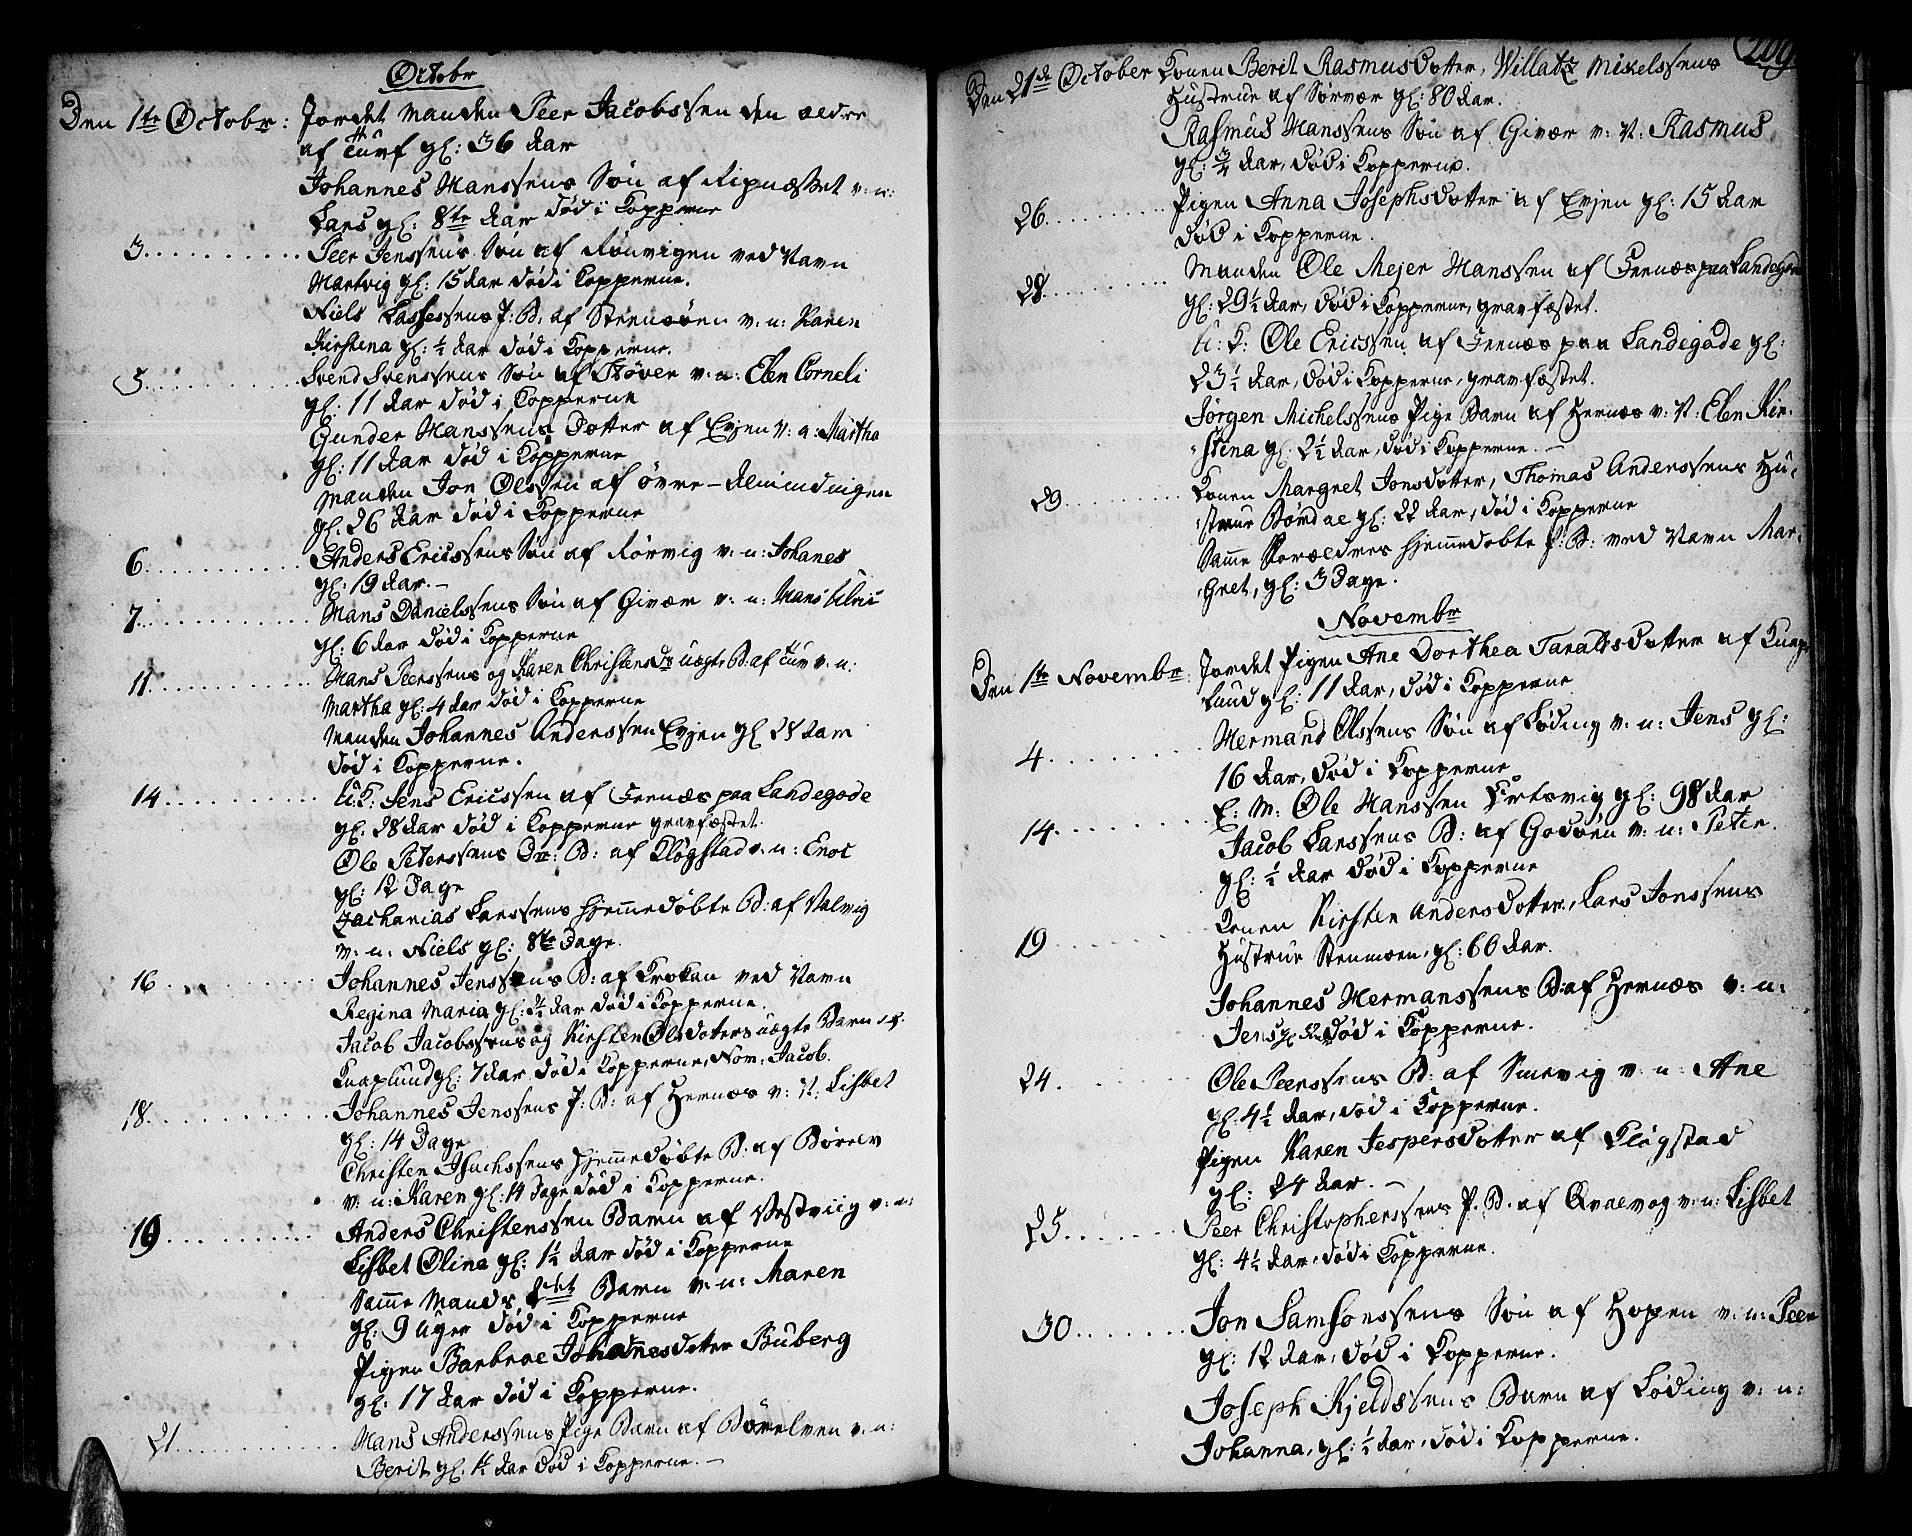 Octobr
Den 1te Octobr: Jordet Manden Peer Jacobssen den ældre
af Turf gl: 36 Aar
Johannes Hanssens Søn af Ripnæsset v: n:
Lars gl: 8te Aar død i Kopperne
3. Peer Jenssens Søn af Rønvigen ved Navn
Hartvig gl: 15 Aar død i Kopperne.
Niels Lassesens P: B: af Strenøen v: n: Karen
Kirstena gl: ½ Aar død i Kopperne.
5. Svend Svenssens Søn af Støver v: n: Eben Corneli
gl: 11 Aar død i Kopperne
Gunder Hanssens Dotter af Evjen v: n: Martha
gl: 11 Aar død i Kopperne
Manden Jon Olssen af øvre-Almindingen
gl. 26 Aar død i Kopperne
6. Anders Ericssens Søn af Rørvig v: n: Johanes
gl: 19 Aar.–
7. Hans Danielssens Søn af Givær v: n: Hans Ulric
gl: 6 Aar død i Kopperne
11. Hans Peerssens og Karen Christensdr uægte B: af Turv v: n:
Martha gl: 4 Aar død i Kopperne
Manden Johannes Anderssen Evjen gl 28 Aar
død i Kopperne.
14. U: K: Jens Ericssen af Fernæs paa Landegode
gl: 28 Aar død i Kopperne gravfæstet.
Ole Peterssens Dr: B: af Kløgstad v: n: Enoc
gl: 12 Dage
Zacharias Larssens hjemmedøbte B: af Valvig
v: n: Niels gl: 8te Dage.
16. Johannes Jenssens B: af Krokan ved Navn
Regina Maria gl: ¾ Aar død i Kopperne.
Jacob Jacobssens og Kirsten Olsdotters uægte Barn af
Knaplund gl: 7 Aar død i Kopperne, Nom: Jacob.
18. Johannes Jenssens P: B: af Hernæs v: N: Lisbet
gl: 14 Dage
Christen Isachssens hjemmedøbte B. af Børelv
v: n: Karen gl: 14 Dage død i Kopperne.
19. Anders Christenssen Barn af Vestviig v: n:
Lisbet Olina gl: 1½ Aar død i Kopperne
Samme Mands Barn v: n: Maren
gl: 9 Uger død i Kopperne
Pigen Barbroe Johannesdotter Buberg
gl: 17 Aar død i Kopperne.
21. Hans Anderssens Pige Barn af Børelven v: n:
Berit gl: Aar død i Kopperne.–
209
Den 21de October Konen Berit Rasmusdotter, Willatz Mikelssens
Hustrue af Sørvær gl: 80 Aar.
Rasmus Hanssens Søn af Givær v: N: Rasmus
gl: ¾ Aar, død i Kopperne.
26. Pigen Anna Josephsdotter af Evjen gl: 15 Aar
død i Kopperne.
28. Manden Ole Mejer Hanssen af Fernæs paa Landegode
gl: 29½ Aar, død i Kopperne, gravfæstet.
U: K: Ole Ericssen af Fernæs paa Landegode gl:
23½ Aar, død i Kopperne, gravfæstet.
Jørgen Michelssens Pige Barn af Hernæs v: N: Eben Kir-
stena gl. 2½ Aar, død i Kopperne.–
29. Konen Margret Jonsdotter, Thomas Anderssens Hu-
strue Børdae gl: 22 Aar, død i Kopperne
Samme Forældres hjemmedøbte P: B: ved Navn Mar-
gret, gl: 3 Dage.
Novembr
Den 1te Novembr: Jordet Pigen Ane Dorthea Taraltsdotter af Knap-
lund gl: 11 Aar, død i Kopperne
4. Hermand Olssens Søn af Løding v: n: Jens gl:
16 Aar, død i Kopperne
14. E: M: Ole Hanssen gl: 98 Aar
Jacob Larssens B: af Godøen v: n: Peter.
gl: ½ Aar død i Kopperne
19 Konen Kirsten Andersdotter, Lars Jonssens
Hustrue Stenmoen, gl: 60 Aar.
Johannes Hermanssens B: af Hernæs v: n:
Jens død i Kopperne.
24. Ole Peerssens B: af Smevig v: n: Ane
gl: 4½ Aar, død i Kopperne.
Pigen Karen Jespersdotter af Kløgstad
gl: 24 Aar.–
25. Peer Christopherssens P. B. af Qvalvog v: n: Lisbet
gl: 4½ Aar, død i Kopperne.
30. Jon Samsonssens Søn af Hopen v: n: Peer
gl: 12 Aar, død i Kopperne.
Joseph Kjeldssens Barn af Løding v: n:
Johanna, gl: ½ Aar, død i Kopperne.